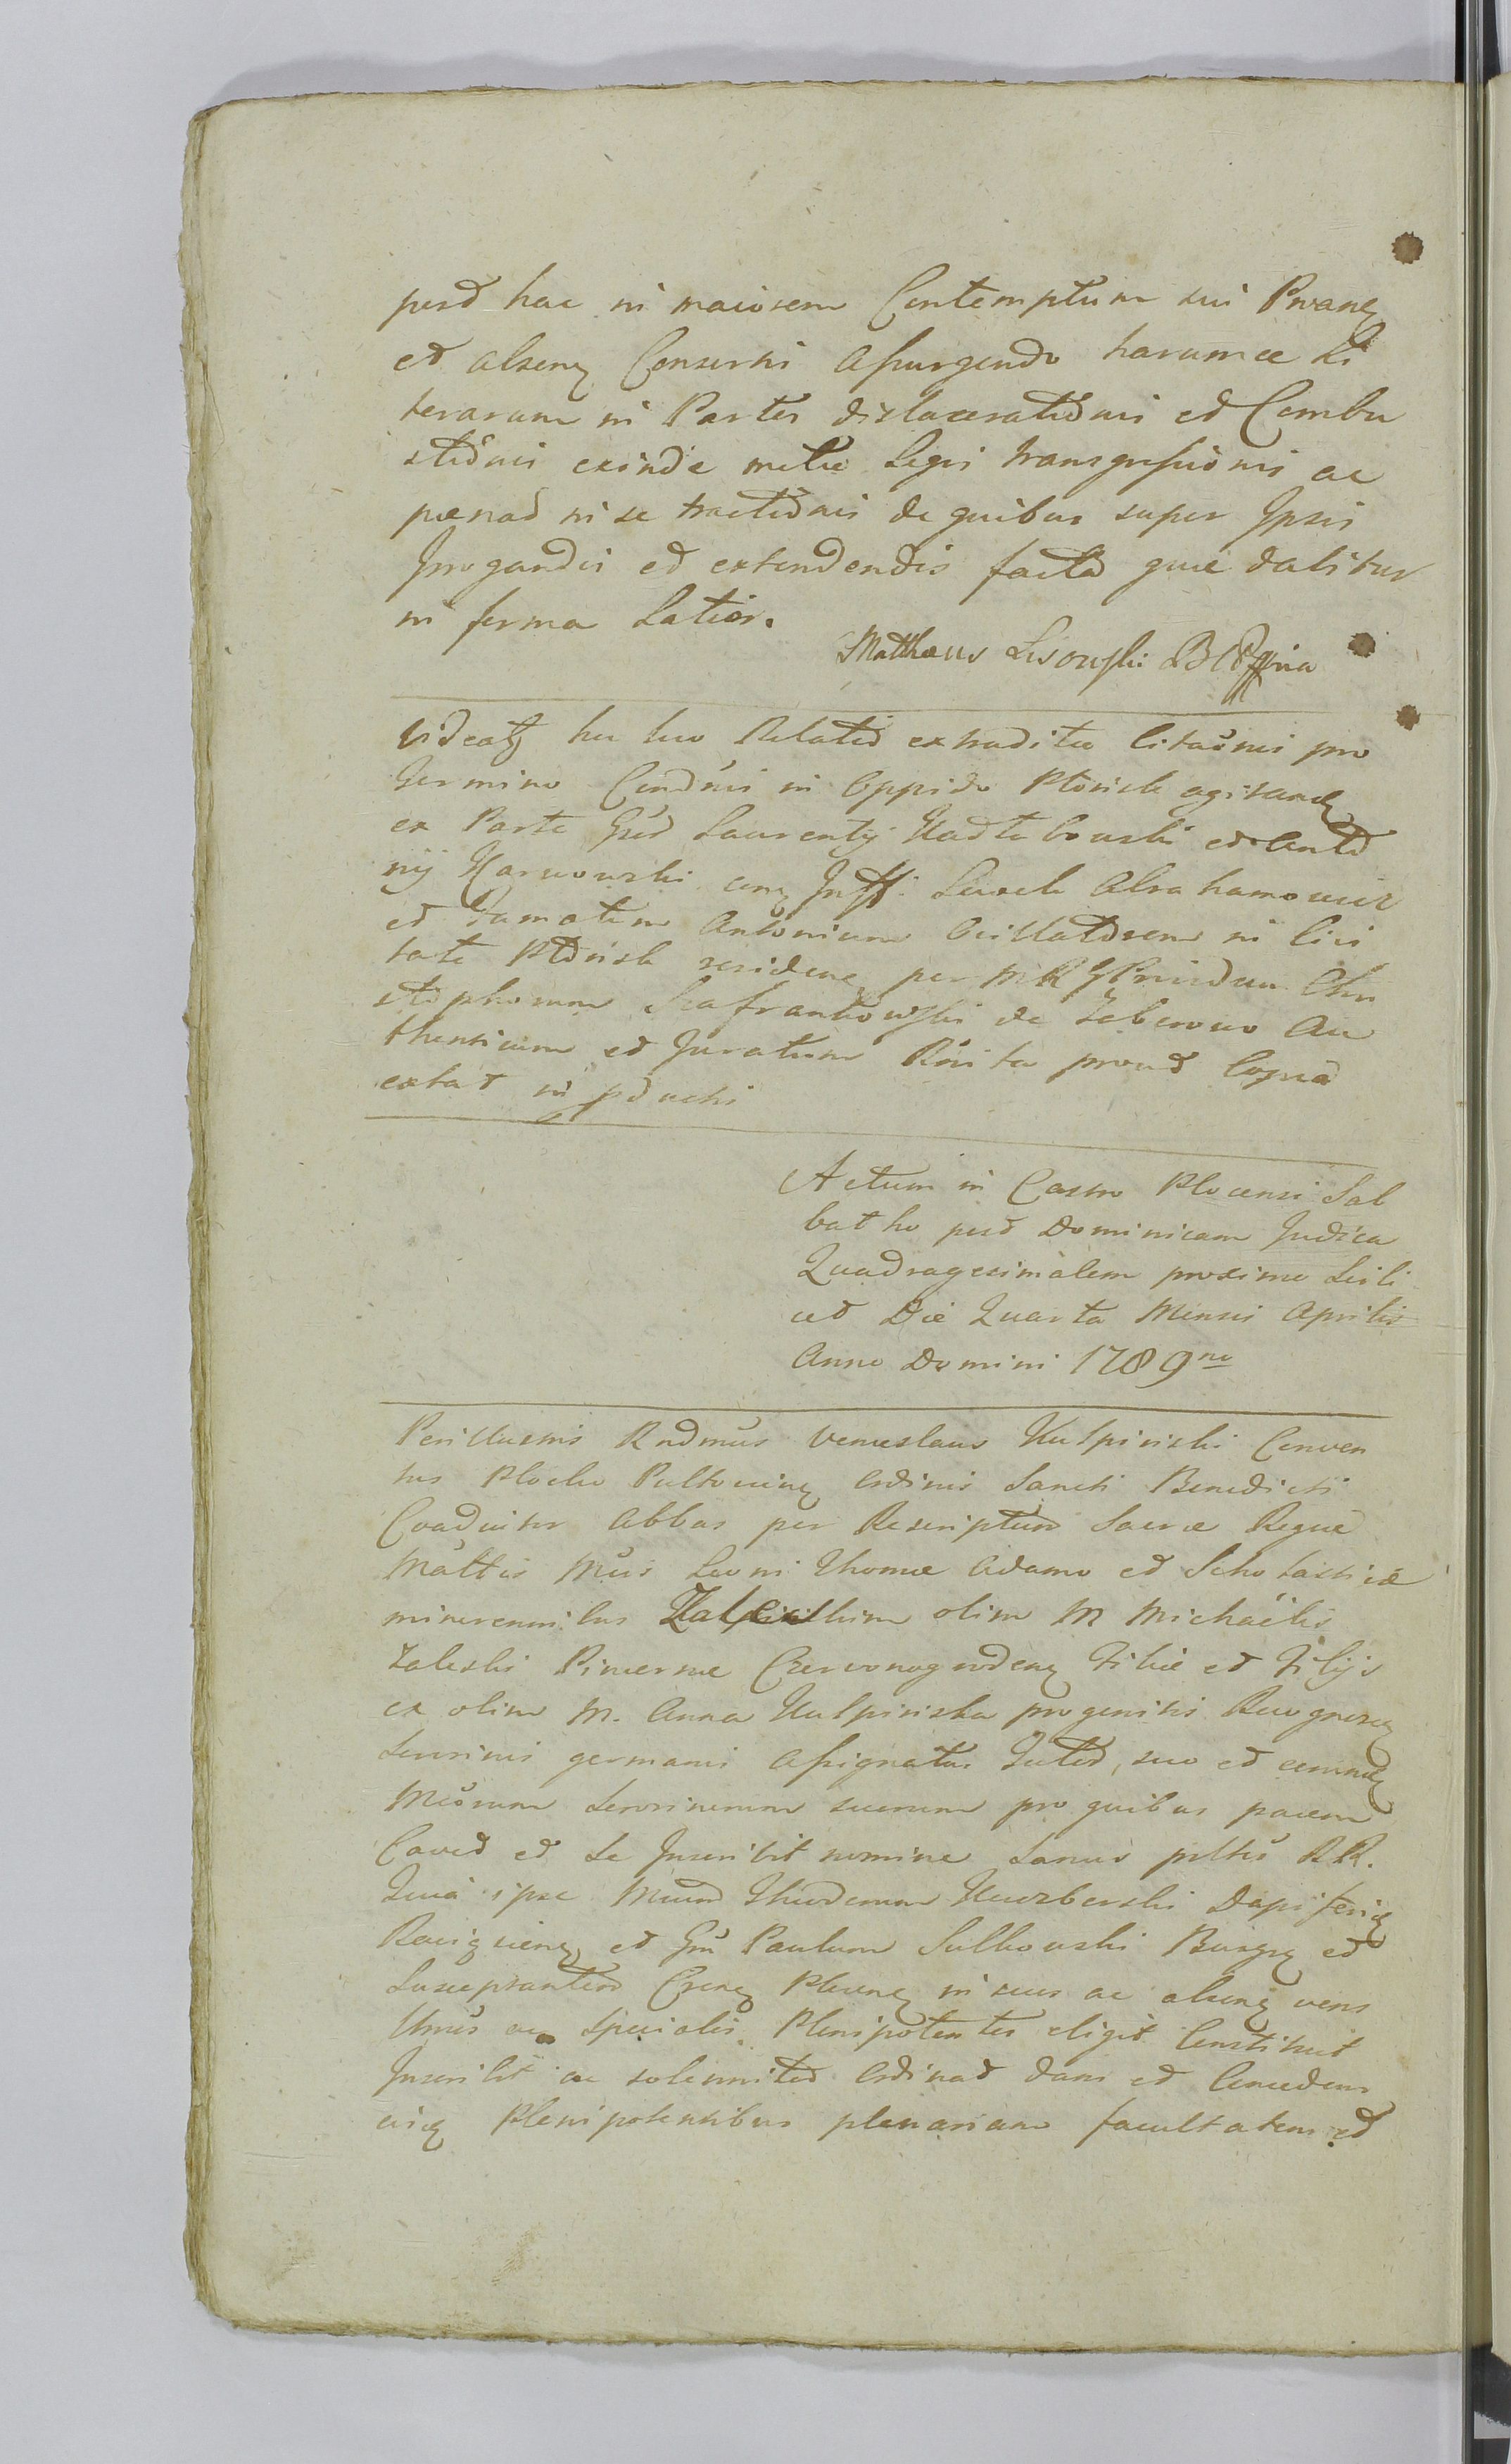 post hac in maiorem Contemptum sui Pnanę
et alsenę Consersni assurgendo harumce Li
terarum in Partes dislaceratiōnis et Combu
stiōnis exinde metae Legis transgressiōnis ac
paenar in se tractiōnis de quibus super Ipsis
Irrogandis et extendendis facta quae dabitur
in forma Latior.
Matthaeus Lisowski
Videatz huc Relatio extraditae Citaōnis pro
Termino Condnis in Oppido Płońsk agitandę
ex Parte Laurentij et Anto
nij Karwowski Lewek Abrahamowicz
et Famatum Antonium in Civi
tate Płońsk residenę per Chri
stophorum Szafrankowski de Zeberowo Au
thenticum et Juratum Rnita prout Copia
extat in pduchi
Actum in Castro Plocensi Sab
batho post Dominicam Judica
Quadragesimalem proximo Scili
cet Die Quarta Mensis Aprilis
Anno Domini 1789no
Perillustris Rndmus Venceslaus Kulpiński Conven
tus Plocko Pultovienę Ordinis Sancti Benedicti
Coadiutor Abbas per Rescriptum Sacrae Regiae
Mattis Mcis Leoni Thomae Adamo et Scholasticae
minorennibus olim M Michaëlis
Zaleski Pincernae Czerwonogrodenę Filiae et Filijs
ex olim M. Anna Kulpińska progenitis Recognosę
Sororinis germanis Assignatus Tutor, suo et eorundę
Mcorum Sororinorum suorum pro quibus pacem
Cavet et Se Inscribit nomine Sanus pltus RR.
Quia ipse Mcum Thudenum Dapiferię
Raciązienę et Gm Paulum Sulkowski Burgrę et
Susceptantem Crenę Plocenę in suos ac alsenę veros
ltmos ac Speciales Plenipotentes eligit Constituit
Inscribit ac solenniter Ordinat dans et Concedens
eisę Plenipotentibus plenariam facultatem et